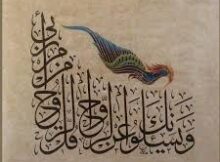 ويسئلونك عن الروح قل الروح من أمر ربي